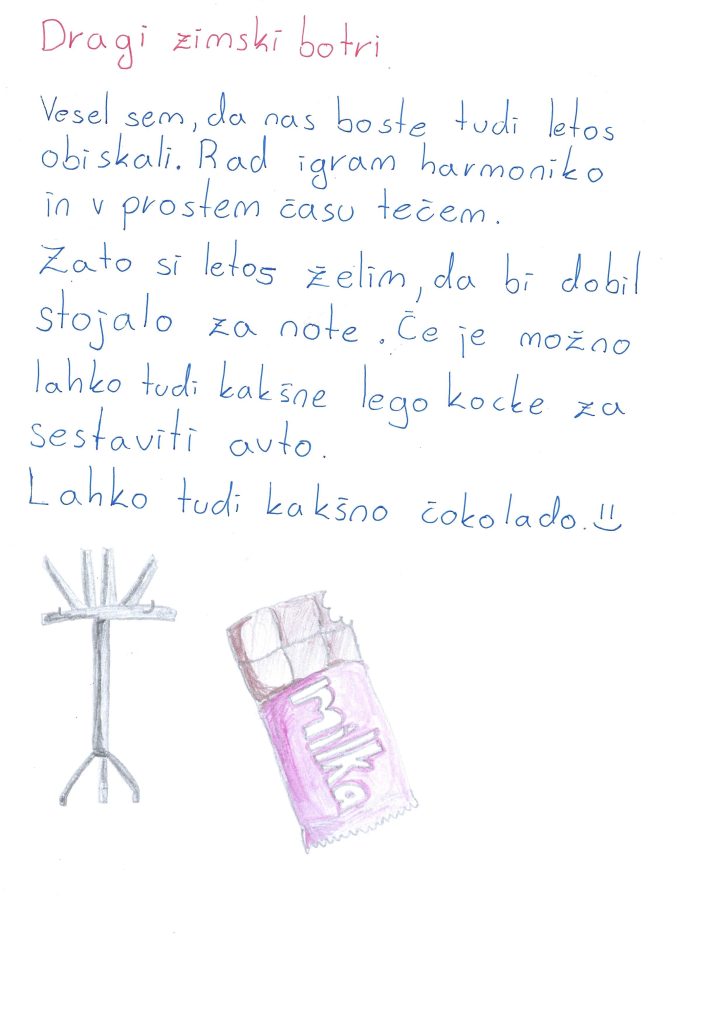 Dragi zimski botri
Vesel sem, da nas boste tudi letos
obiskali. Rad igram harmoniko
in v prostem času tečem.
Zato si letos želim, da bi dobil
stojalo za note. Če je možno
lahko tudi kakšne lego kocke za
sestaviti avto.
Lahko tudi kakšno čokolado. :)
milka